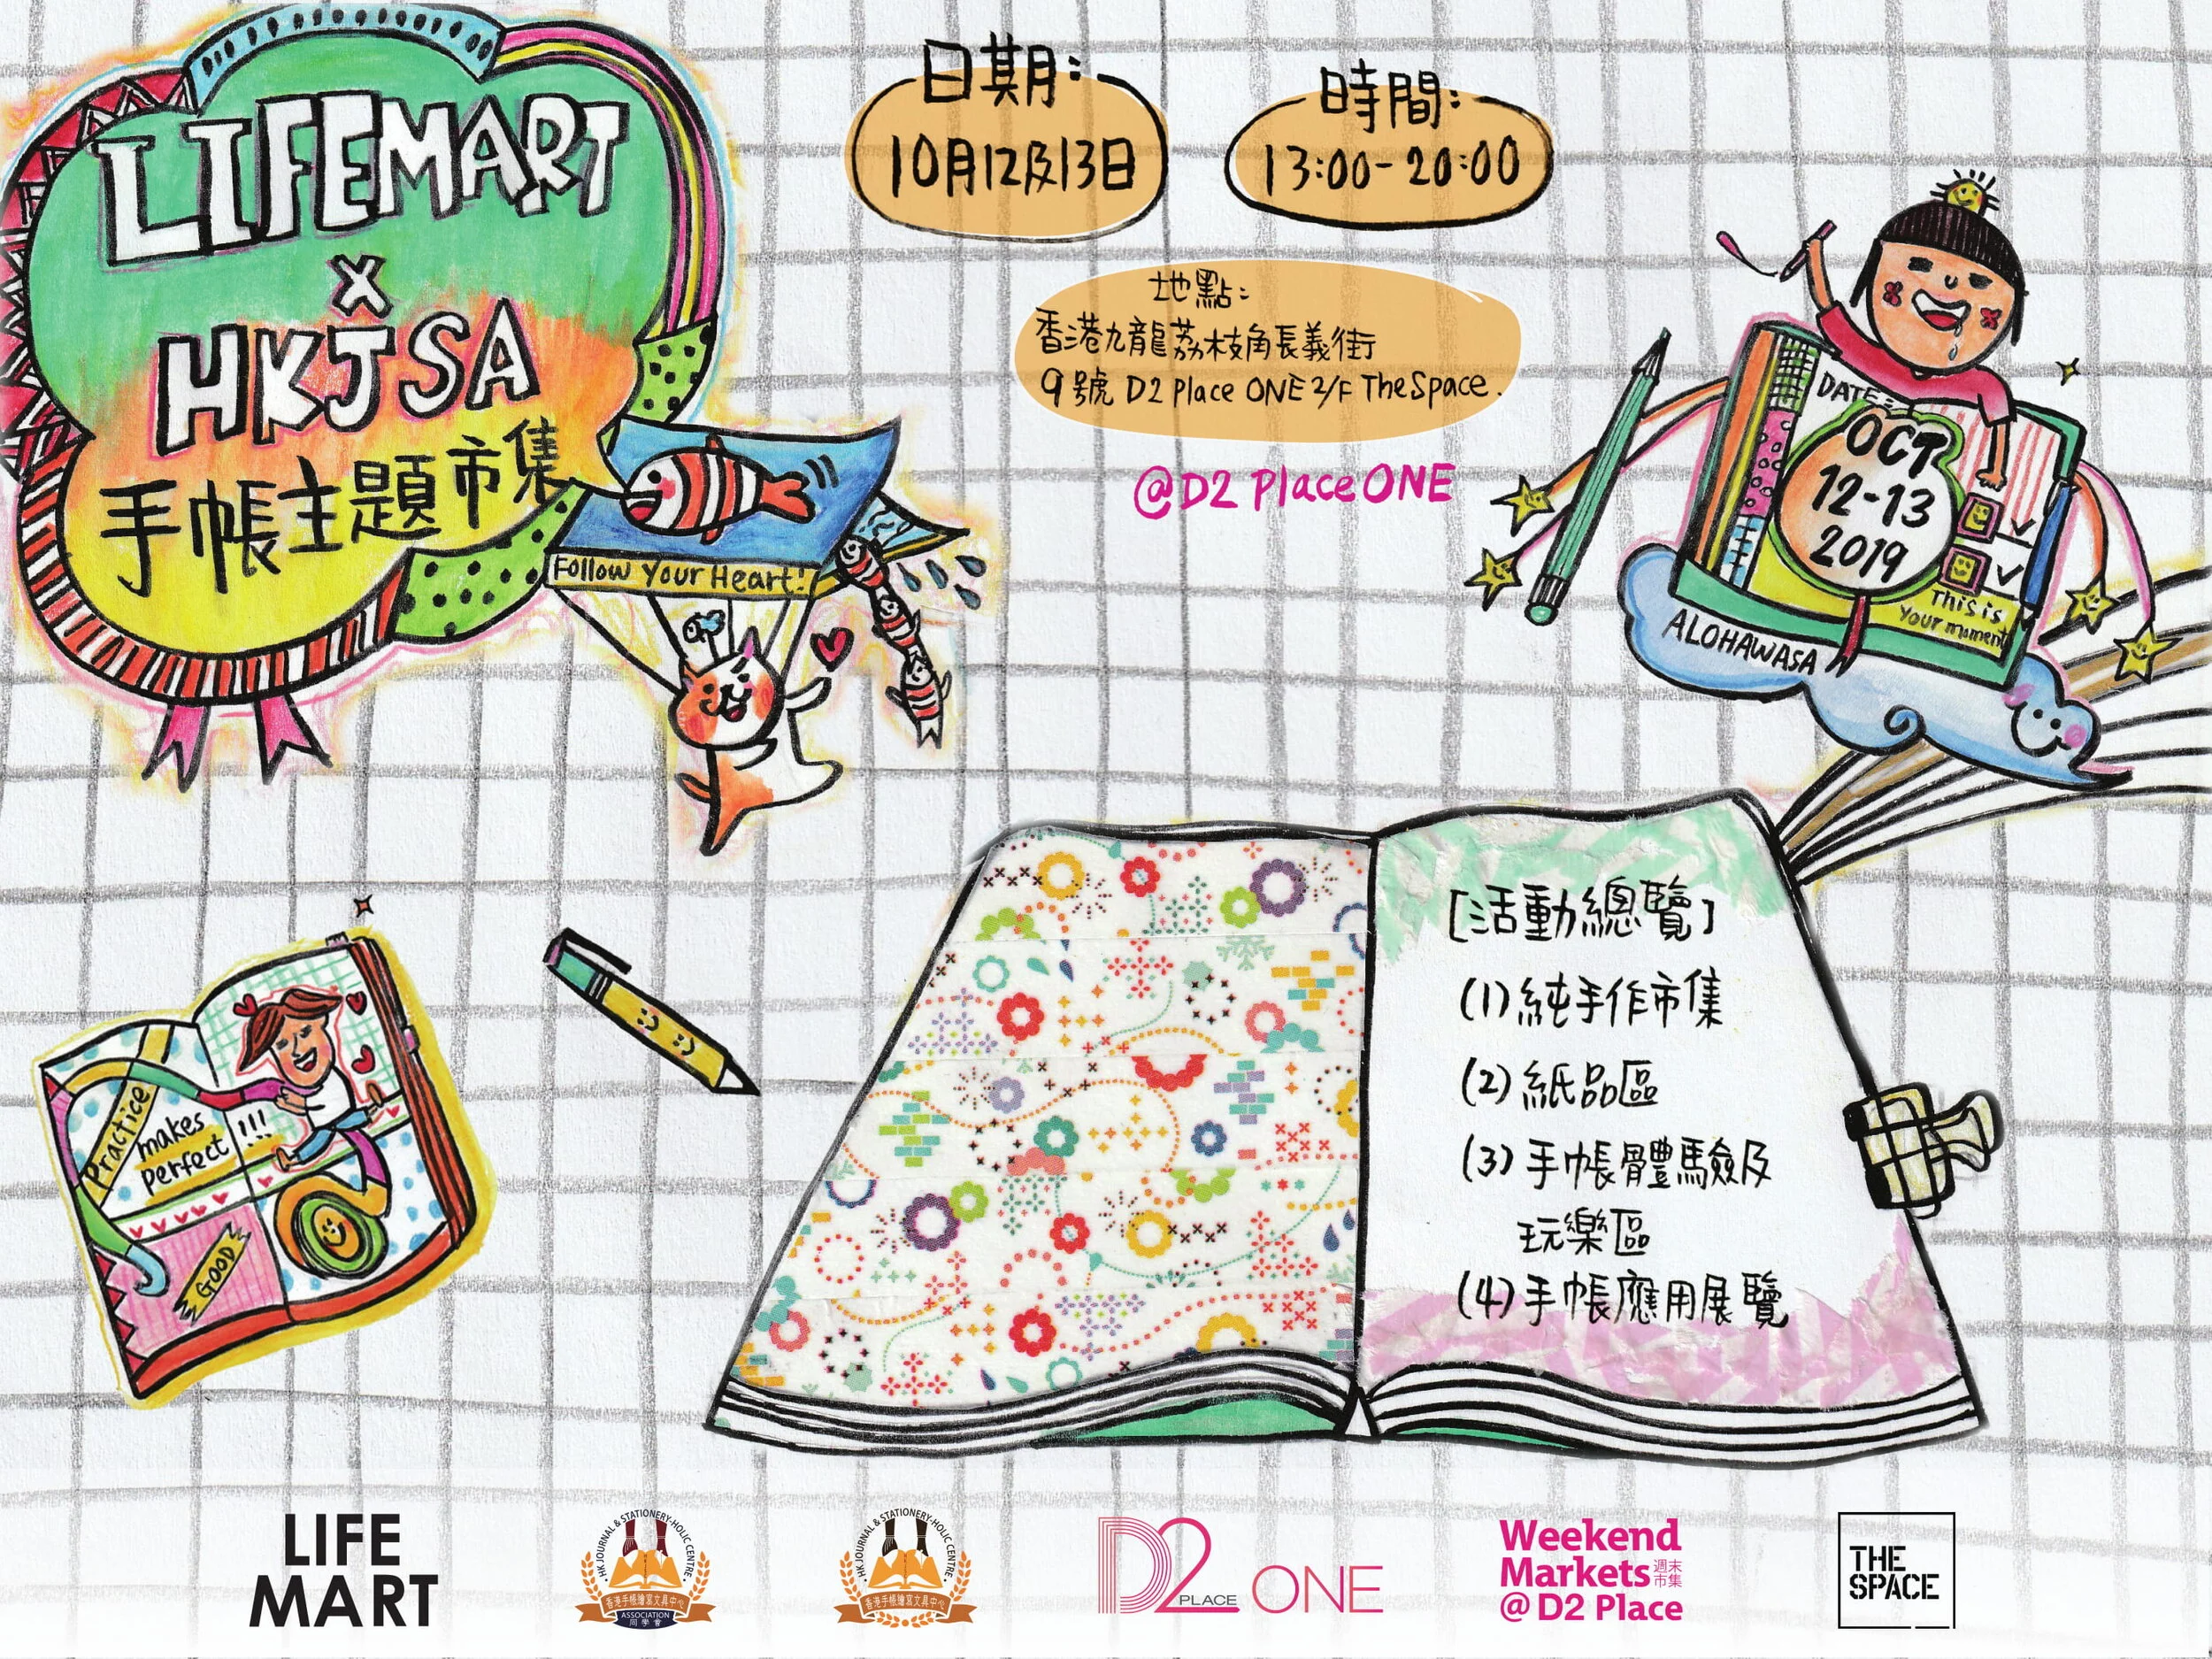 LIFEMART
X
HKJSA
手帳主題市集
Follow Your Heart!
日期:
10月12及13日
時間:
13:00-20:00
地點:
香港九龍荔枝角長義街
9號 D2 Place ONE 2/F The Space.
@D2 Place ONE
DATE:
OCT
12-13
2019
This is
your moment
ALOHAWASA
Practice
makes
perfect
!!!
GOOD
[活動總覽]
(1)純手作市集
(2)紙品區
(3)手帳體驗及
玩樂區
(4)手帳應用展覽
LIFE
MART
HK JOURNAL & STATIONERY-HOLIC CENTRE
香港手帳繪寫文具中心
ASSOCIATION
同學會
HK JOURNAL & STATIONERY-HOLIC CENTRE
香港手帳繪寫文具中心
D2 PLACE ONE
Weekend
Markets 週末市集
@ D2 Place
THE
SPACE